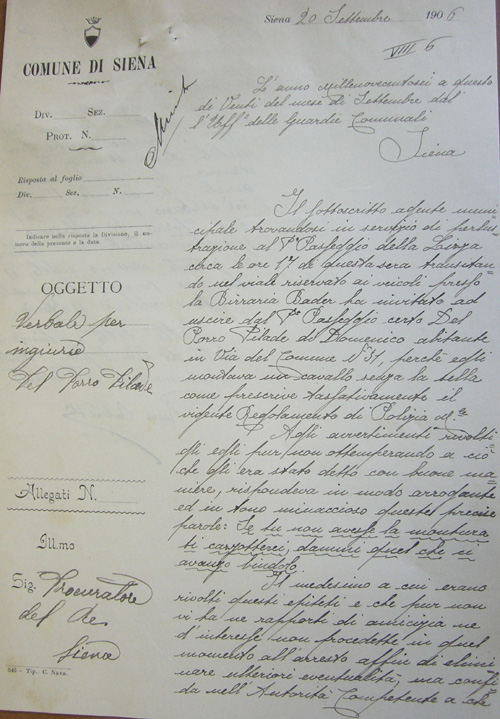 Siena 20 Settembre 1906
VIII 6
COMUNE DI SIENA
Div. Sez.
Prot. N.
Risposta al foglio
Div. Sez. N.
Indicare nella risposta la Divisione, il numero della presente e la data.
L'anno Millenovecentosei a questo
dì Venti del mese di Settembre dal
l'Uff° delle Guardie Comunali
Siena
OGGETTO
Verbale per
ingiurie
Del Porro Pilade
Il sottoscritto agente muni
cipale trovandosi in servizio di perlu
strazione al P° Passeggio della Lizza
circa le ore 17 di questa sera transitan
do nel viale riservato ai veicoli presso
la Birraria Bader ha invitato ad
uscire dal P° Passeggio certo Del
Porro Pilade di Domenico abitante
in Via del Comune N° 31, perché egli
montava un cavallo senza la sella
come prescrive tassativamente il
vigente Regolamento di Polizia
Agli avvertimenti rivolti
gli egli pur non ottemperando a ciò
che gli era stato detto con buone ma
niere, rispondeva in modo arrogante
ed in tono minaccioso queste precise
parole: Se tu non avesse la montura
ti cazzotterei, dammi quel che
avanzo bindolo.
Il medesimo a cui erano
rivolti questi epiteti e che pur non
vi ha ne rapporti di amicizia ne
d'interesse non procedette in quel
momento all'arresto affin di elimi
nare ulteriori eventualità, ma confi
da nell'Autorità Competente a che
Allegati N.
Ill.mo
Sig. Procuratore
del Re
Siena
Tip. C. Nava.